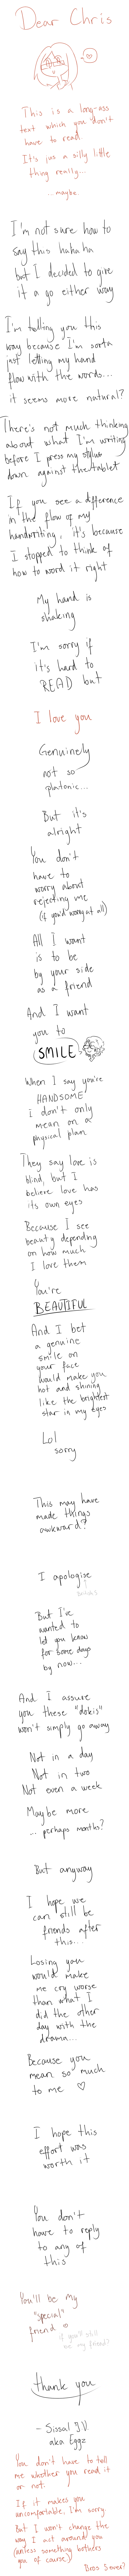 Dear Chris
This is a long-ass
text which you don't
have to read
It's just a silly little
thing really...
...maybe.
I'm not sure how to
say this ha ha ha
but I decided to give
it a go either way
I'm telling you this
way because I'm sorta
just letting my hand
flow with the words...
it seems more natural?
There's not much thinking
about what I'm writing
before I press my stylus
down against the tablet
If you see a difference
in the flow of my
handwriting, it's because
I stopped to think of
how to word it right
My hand is
shaking
I'm sorry if
it's hard to
READ but
I love you
Genuinely
not so
platonic...
But it's
alright
You don't
have to
worry about
rejecting me
(if you'd worry at all)
All I want
is to be
by your side
as a friend
And I want
you to
SMILE
When I say you're
HANDSOME
I don't only
mean on a
physical plan
They say love is
blind, but I
believe love has
its own eyes
Because I see
beauty depending
on how much
I love them
You're
BEAUTIFUL
And I bet
a genuine
smile on
your face
would make you
hot and shining
like the brightest
star in my eyes
Lol
sorry
This may have
made things
awkward?
I apologise
But I've
wanted to
let you know
for some days
by now...
And I assure
you these "dokis"
won't simply go away
Not in a day
Not in two
Not even a week
Maybe more
... perhaps months?
But anyway
I hope we
can still be
friends after
this...
Losing you
would make
me cry worse
than what I
did the other
day with the
drama...
Because you
mean so much
to me ♡
I hope this
effort was
worth it
You don't
have to reply
to any of
this
You'll be my
"special"
friend
if you'll still
be my friend?
thank you
- Sissal J.V
aka Eggz
You don't have to tell
me whether you read it
or not.
If it makes you
uncomfortable, I'm sorry.
But I won't change the
way I act around you
(unless something bothers
you of course)
Bros 5ever?